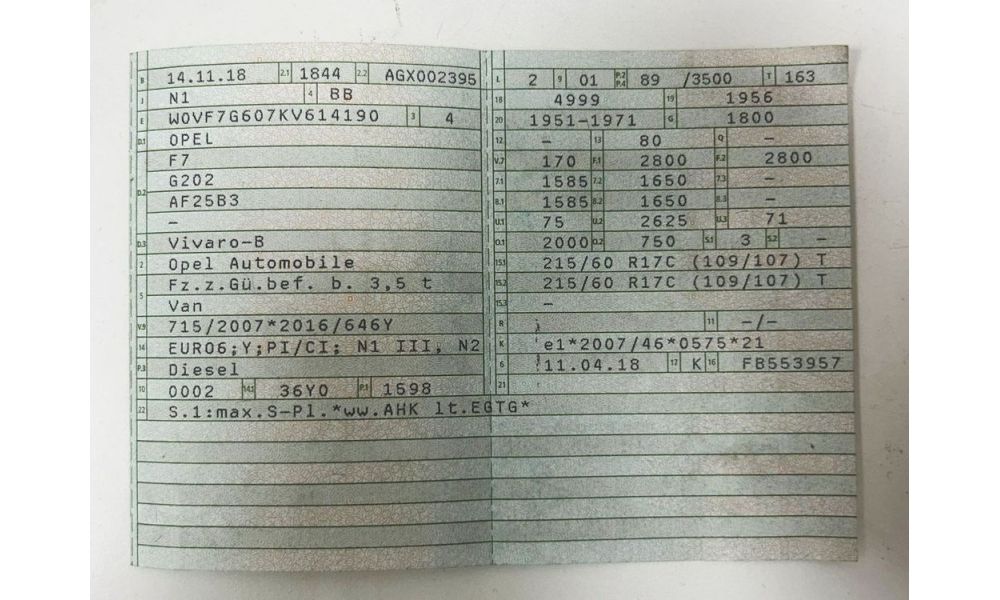 B 14.11.18 2.1 1844 2.2 AGX002395
J N1 4 BB
E W0VF7G607KV614190 3 4
D.1 OPEL
F7
D.2 G202
AF25B3
–
D.3 Vivaro-B
2 Opel Automobile
5 Fz.z.Gü.bef. b. 3,5 t
Van
V.9 715/2007*2016/646Y
14 EURO6;Y;PI/CI; N1 III, N2
P.3 Diesel
10 0002 14.1 36Y0 P.1 1598
22 S.1:max.S-Pl.*ww.AHK lt.EGTG*
L 2 9 01 P.2 P.4 89 /3500 T 163
18 4999 19 1956
20 1951-1971 G 1800
12 – 13 80 Q –
V.7 170 F.1 2800 F.2 2800
7.1 1585 7.2 1650 7.3 –
8.1 1585 8.2 1650 8.3 –
U.1 75 U.2 2625 U.3 71
O.1 2000 O.2 750 S.1 3 S.2 –
15.1 215/60 R17C (109/107) T
15.2 215/60 R17C (109/107) T
15.3 –
R 11 –/–
K e1*2007/46*0575*21
6 11.04.18 17 K 16 FB553957
21